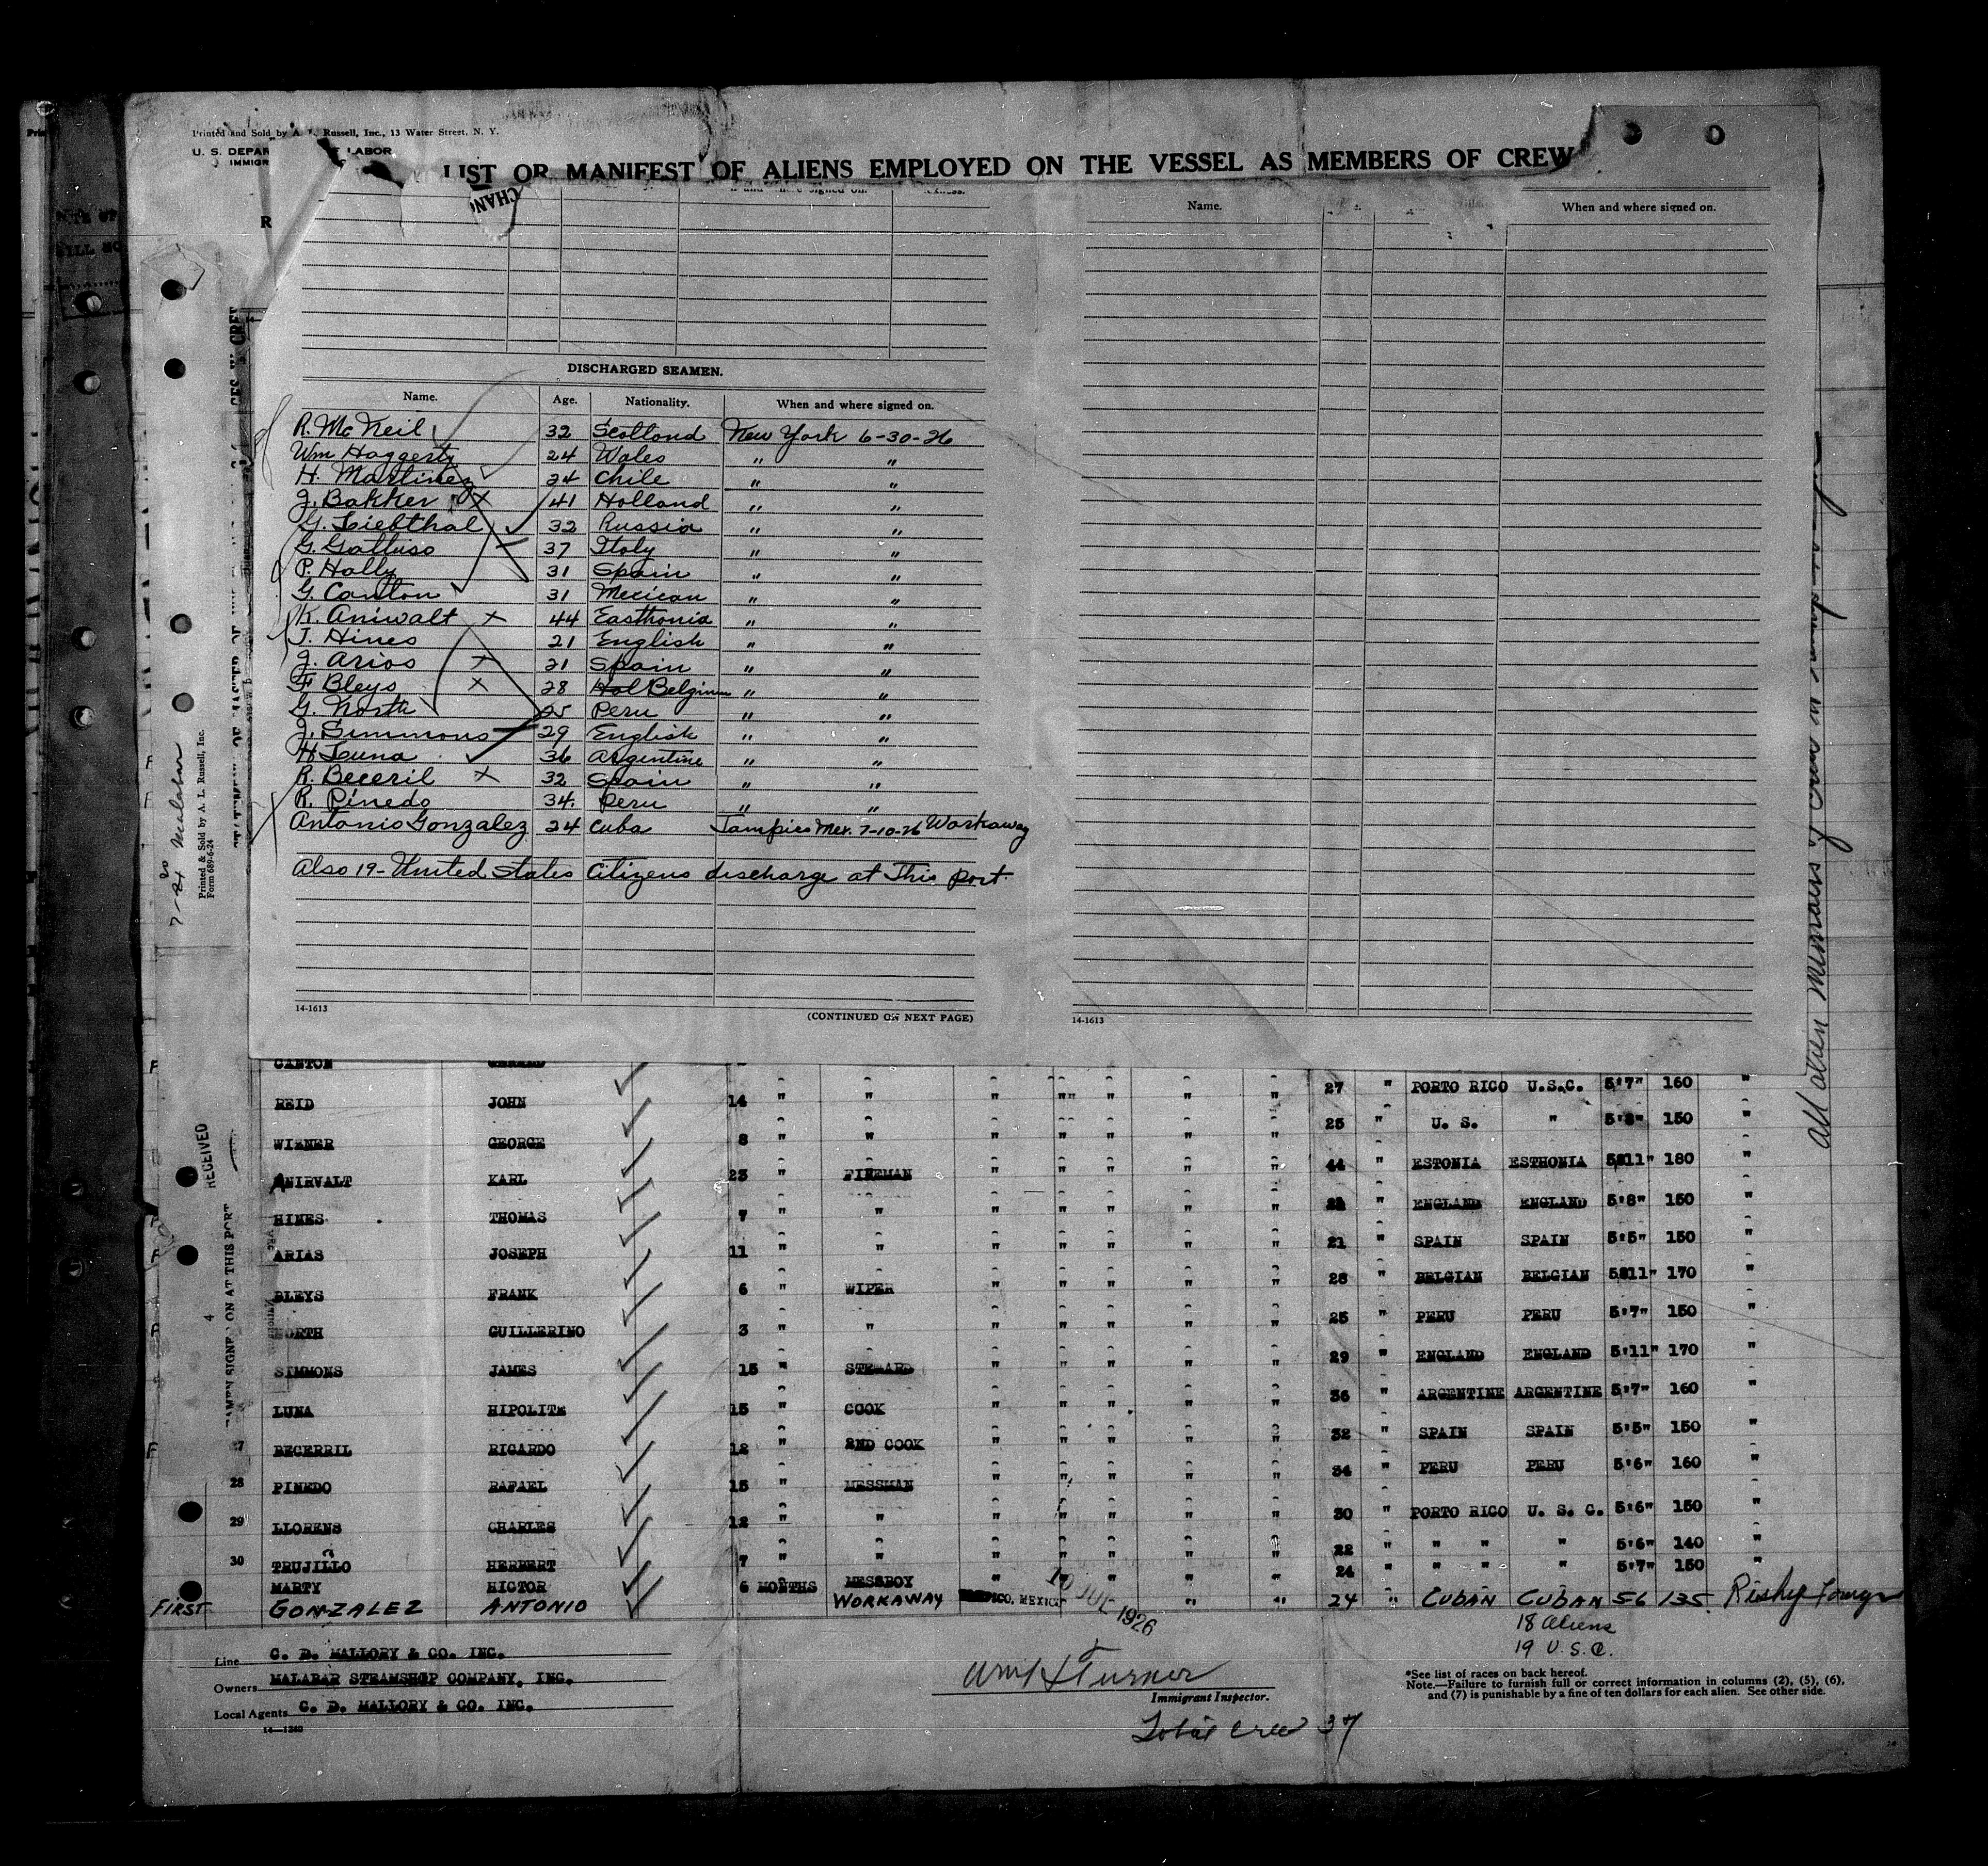 Printed and Sold by A. L. Russell, Inc., 13 Water Street, N. Y.
U. S. DEPAR LABOR
IMMIGR
LIST OR MANIFEST OF ALIENS EMPLOYED ON THE VESSEL AS MEMBERS OF CREW
CHANG
Name. When and where signed on.
DISCHARGED SEAMEN.
Name. Age. Nationality. When and where signed on.
R. McNeil 32 Scotland New York 6-30-26
Wm Haggerty 24 Wales " "
H. Martinez 24 Chile " "
J. Bakker X 41 Holland " "
G. Liebthal 32 Russia " "
G. Galluso 37 Italy " "
P. Holly 31 Spain " "
G. Canton 31 Mexican " "
K. Aniwalt X 44 Easthonia " "
T. Hines 21 English " "
J. Arios X 21 Spain " "
F Bleys X 28 Hol Belgium " "
G. North 25 Peru " "
J. Simmons 29 English " "
H Luna 36 Argentine " "
R. Beceril X 32 Spain " "
R. Pinedo 34. Peru " "
Antonio Gonzalez 24 Cuba Tampico Mex. 7-10-26 Workaway
Also 19- United States Citizens discharge at This port.
14-1613 (CONTINUED ON NEXT PAGE) 14-1613
7-20 Malabar
Printed & Sold by A. L. Russell, Inc.
Form 689-6-24
RECEIVED
SEAMEN SIGNED ON AT THIS PORT
All alien members of crew
CANTON GERARD
REID JOHN 14 " " " " " " " 27 " PORTO RICO U.S.C. 5'7" 160 "
WIENER GEORGE 8 " " " " " " " 25 " U. S. " 5'8" 150 "
ANIRVALT KARL 23 " FIREMAN " " " " " 44 " ESTONIA ESTHONIA 5'11" 180 "
HINES THOMAS 7 " " " " " " " 22 " ENGLAND ENGLAND 5'8" 150 "
ARIAS JOSEPH 11 " " " " " " " 21 " SPAIN SPAIN 5'5" 150 "
BLEYS FRANK 6 " WIPER " " " " " 28 " BELGIAN BELGIAN 5'11" 170 "
NORTH GUILLERINO 3 " " " " " " " 25 " PERU PERU 5'7" 150 "
SIMMONS JAMES 15 " STEWARD " " " " " 29 " ENGLAND ENGLAND 5'11" 170 "
LUNA HIPOLITE 15 " COOK " " " " " 36 " ARGENTINE ARGENTINE 5'7" 160 "
27 BECERRIL RICARDO 12 " 2ND COOK " " " " " 32 " SPAIN SPAIN 5'5" 150 "
28 PINEDO RAFAEL 15 " MESSMAN " " " " " 34 " PERU PERU 5'6" 160 "
29 LLORENS CHARLES 12 " " " " " " " 30 " PORTO RICO U. S. C. 5'6" 150 "
30 TRUJILLO HERBERT 7 " " " " " " " 22 " " " " 5'6" 140 "
MARTY HICTOR 6 MONTHS MESSBOY " " " " " 24 " " " " 5'7" 150 "
FIRST GONZALEZ ANTONIO WORKAWAY TAMPICO, MEXICO 10 JUL 1926 " " 24 " CUBAN CUBAN 56 135
18 Aliens
19 U.S.C.
Line C. D. MALLORY & CO. INC.
Owners MALABAR STEAMSHOP COMPANY, INC.
Local Agents C. D. MALLORY & CO. INC.
14-1240
Turner
Immigrant Inspector.
Total Crew 37
*See list of races on back hereof.
Note.—Failure to furnish full or correct information in columns (2), (5), (6),
and (7) is punishable by a fine of ten dollars for each alien. See other side.